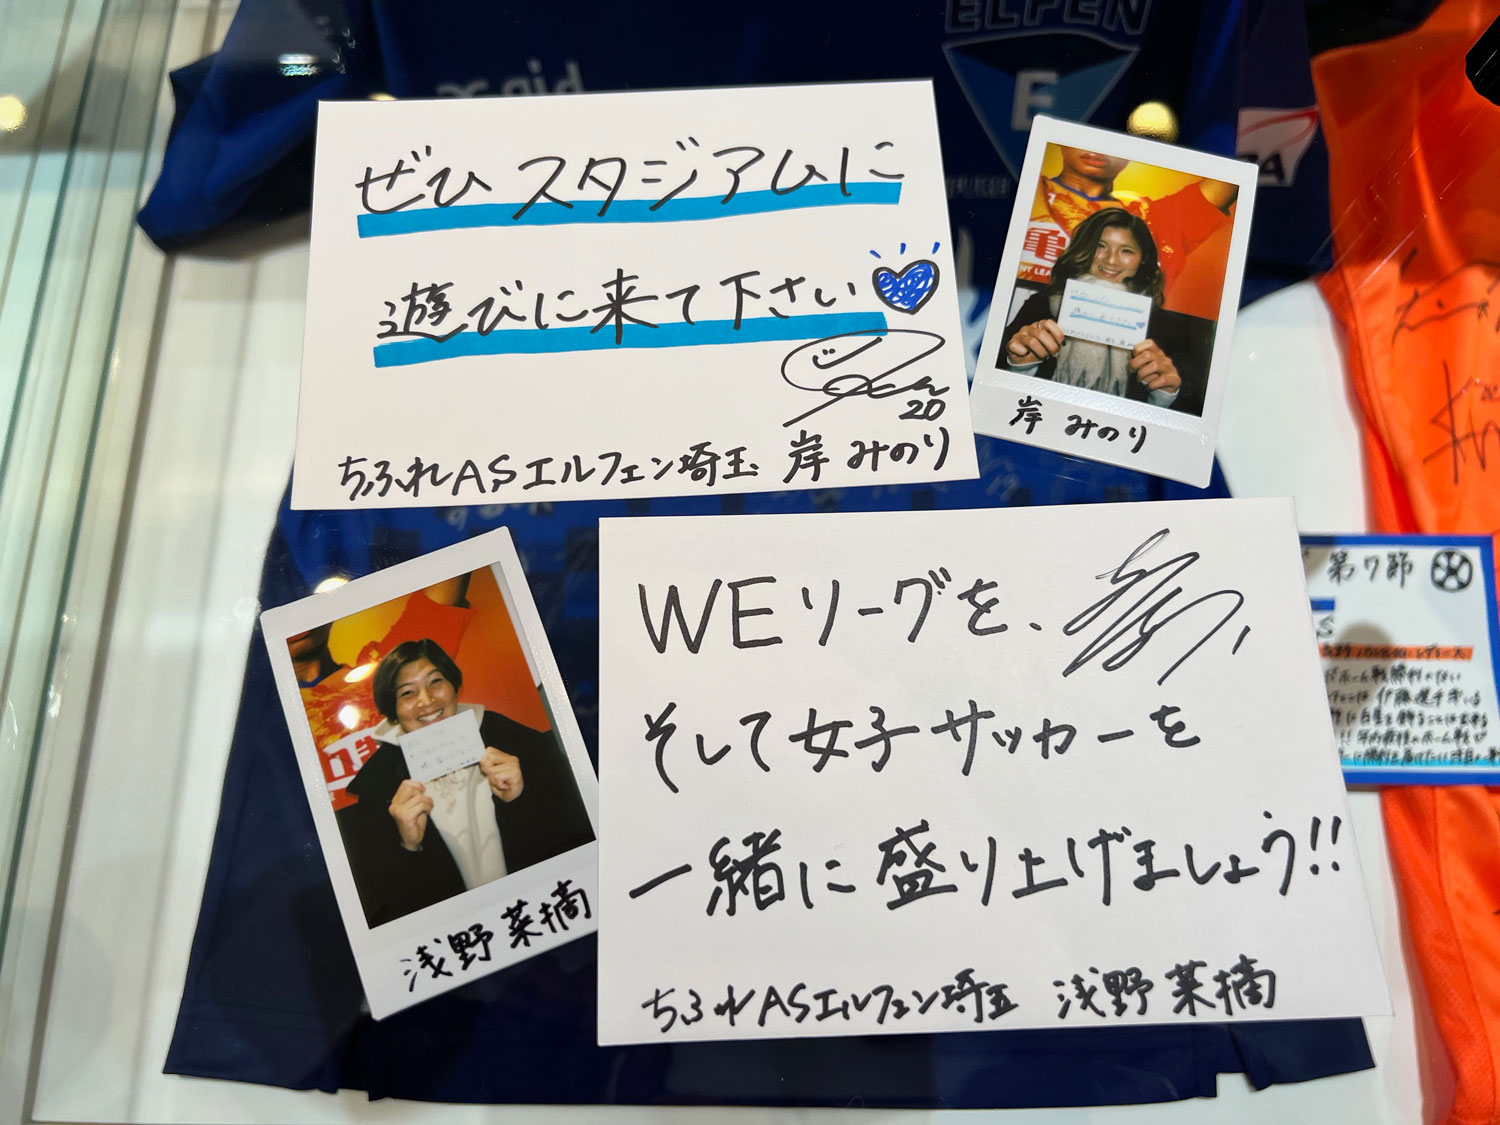 ELFEN
E
ぜひスタジアムに
遊びに来て下さい
20
ちふれASエルフェン埼玉 岸みのり
岸 みのり
WEリーグを、
そして女子サッカーを
一緒に盛り上げましょう!!
ちふれASエルフェン埼玉 浅野菜摘
浅野菜摘
第7節